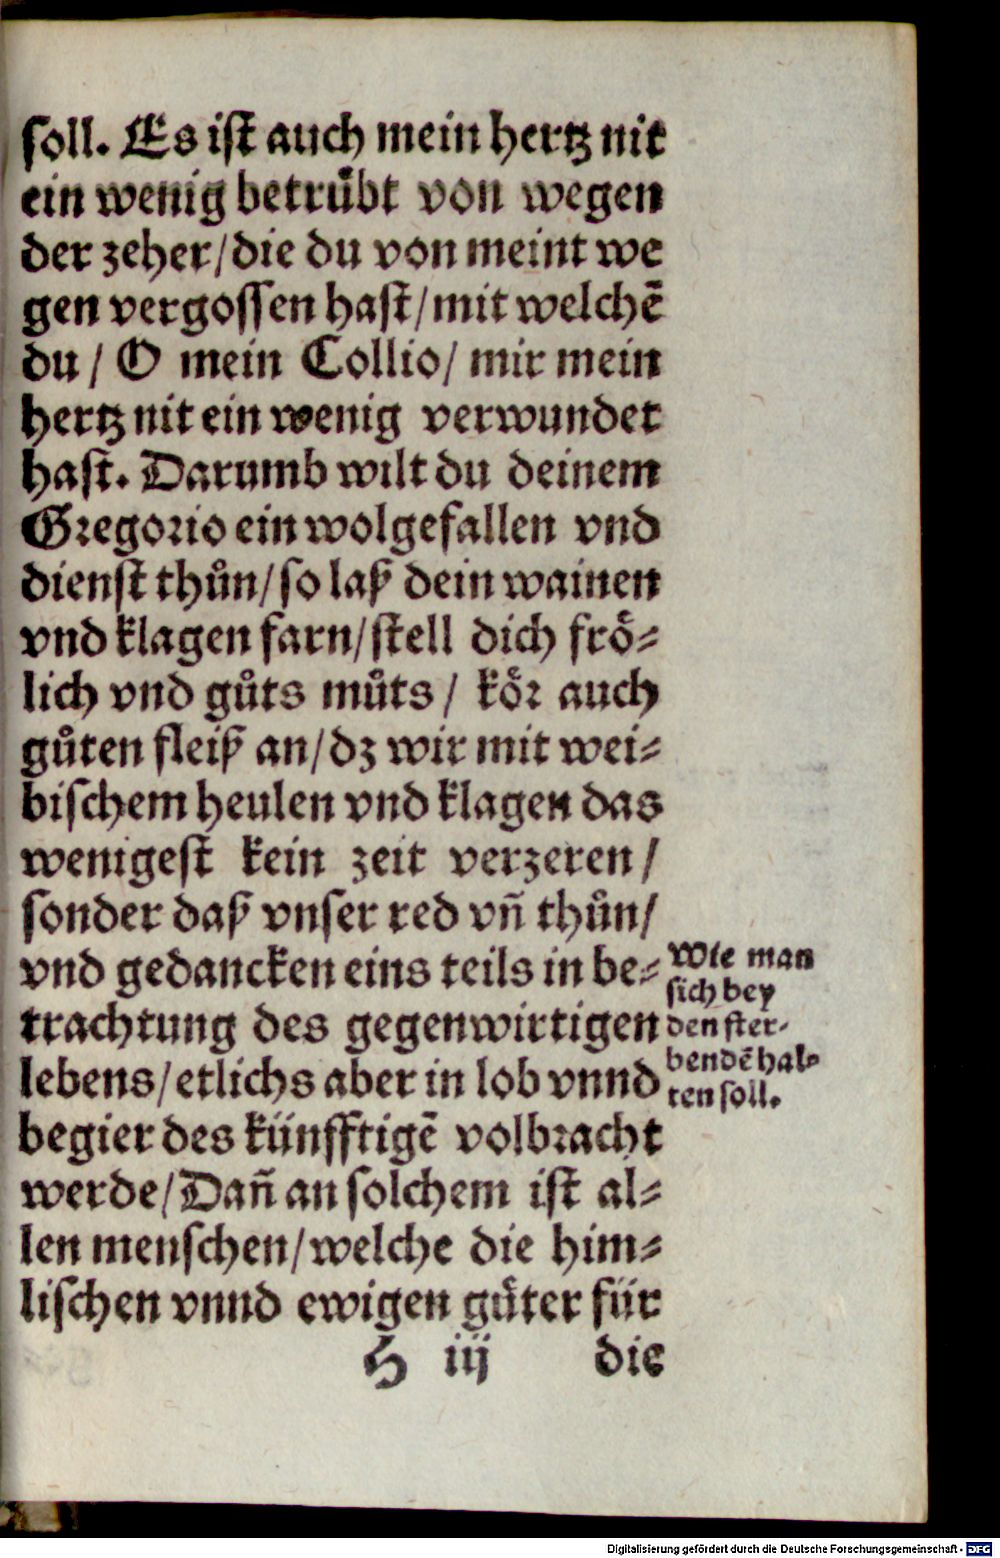 soll. Es ist auch mein hertz nit
ein wenig betruͤbt von wegen
der zeher/die du von meint we
gen vergossen hast/mit welchẽ
du / O mein Collio/ mir mein
hertz nit ein wenig verwundet
hast. Darumb wilt du deinem
Gregorio ein wolgefallen vnd
dienst thuͦn/so laß dein wainen
vnd klagen farn/stell dich froͤ-
lich vnd guͦts muͦts/ koͤr auch
guͦten fleiß an/dz wir mit wei-
bischem heulen vnd klagen das
wenigest kein zeit verzeren/
sonder daß vnser red vñ thuͦn/
vnd gedancken eins teils in be-
trachtung des gegenwirtigen
lebens/etlichs aber in lob vnnd
begier des künfftigẽ volbracht
werde/Dañ an solchem ist al-
len menschen/welche die him-
lischen vnnd ewigen guͤter für
H iij die
Wie man
sich bey
den ster-
bendẽ hal-
ten soll.
Digitalisierung gefördert durch die Deutsche Forschungsgemeinschaft - DFG